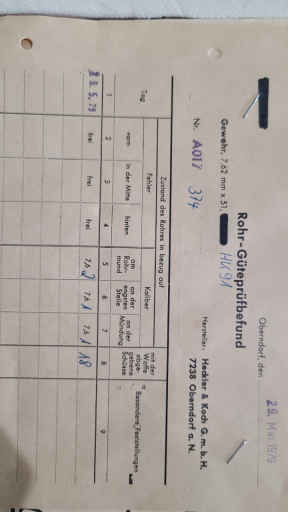 Oberndorf, den 29. Mai 1979
Rohr-Güteprüfbefund
Gewehr, 7,62 mm x 51, HK 91
Nr. A017 374
Hersteller: Heckler & Koch G. m. b. H.
7238 Oberndorf a. N.
Zustand des Rohres in bezug auf
Tag
Fehler
Kaliber
vorn
in der Mitte
hinten
am Rohrmund
an der engsten Stelle
an der Mündung
mit der Waffe abgegebene Schüsse
Besondere Feststellungen
1 2 3 4 5 6 7 8 9
5. 79 frei frei frei 7,62 7,61 7,61 18